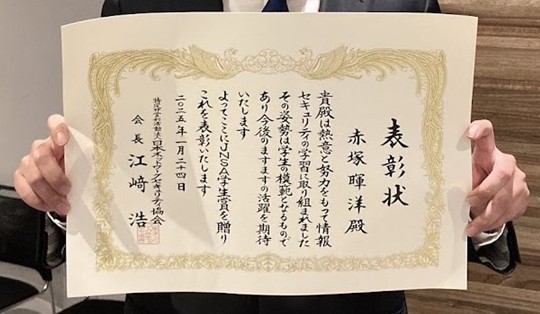 表彰状
赤塚暉洋殿
貴殿は熱意と努力をもって情報
セキュリティの学習に取り組まれました
その姿勢は学生の模範となるもので
あり今後のますますの活躍を期待
いたします
よってここにJNSA学生賞を贈り
これを表彰いたします
二〇二五年一月二十四日
特定非営利活動法人日本ネットワークセキュリティ協会
会長 江﨑 浩